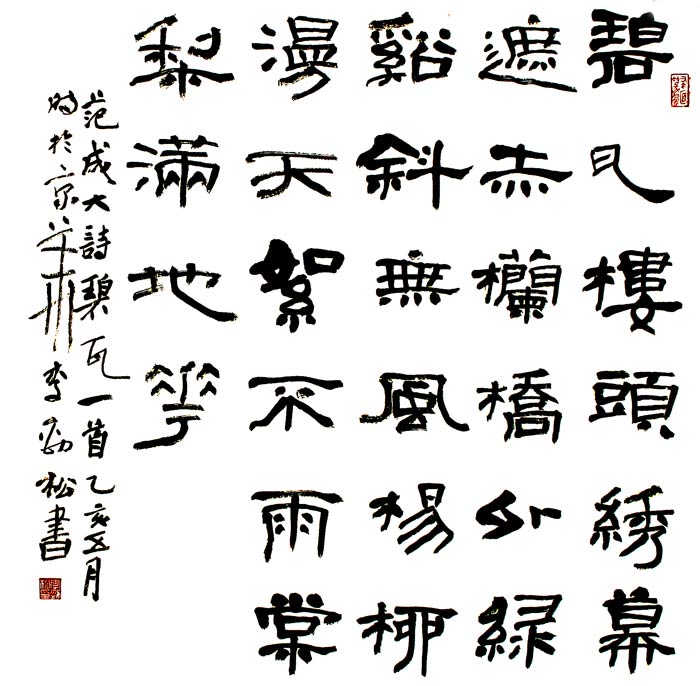 碧瓦樓頭綉幕
遮赤欄橋外緑
谿斜無風楊柳
漫天絮不雨棠
梨滿地花
范成大詩碧瓦一首乙亥五月
時於京華李劲松書